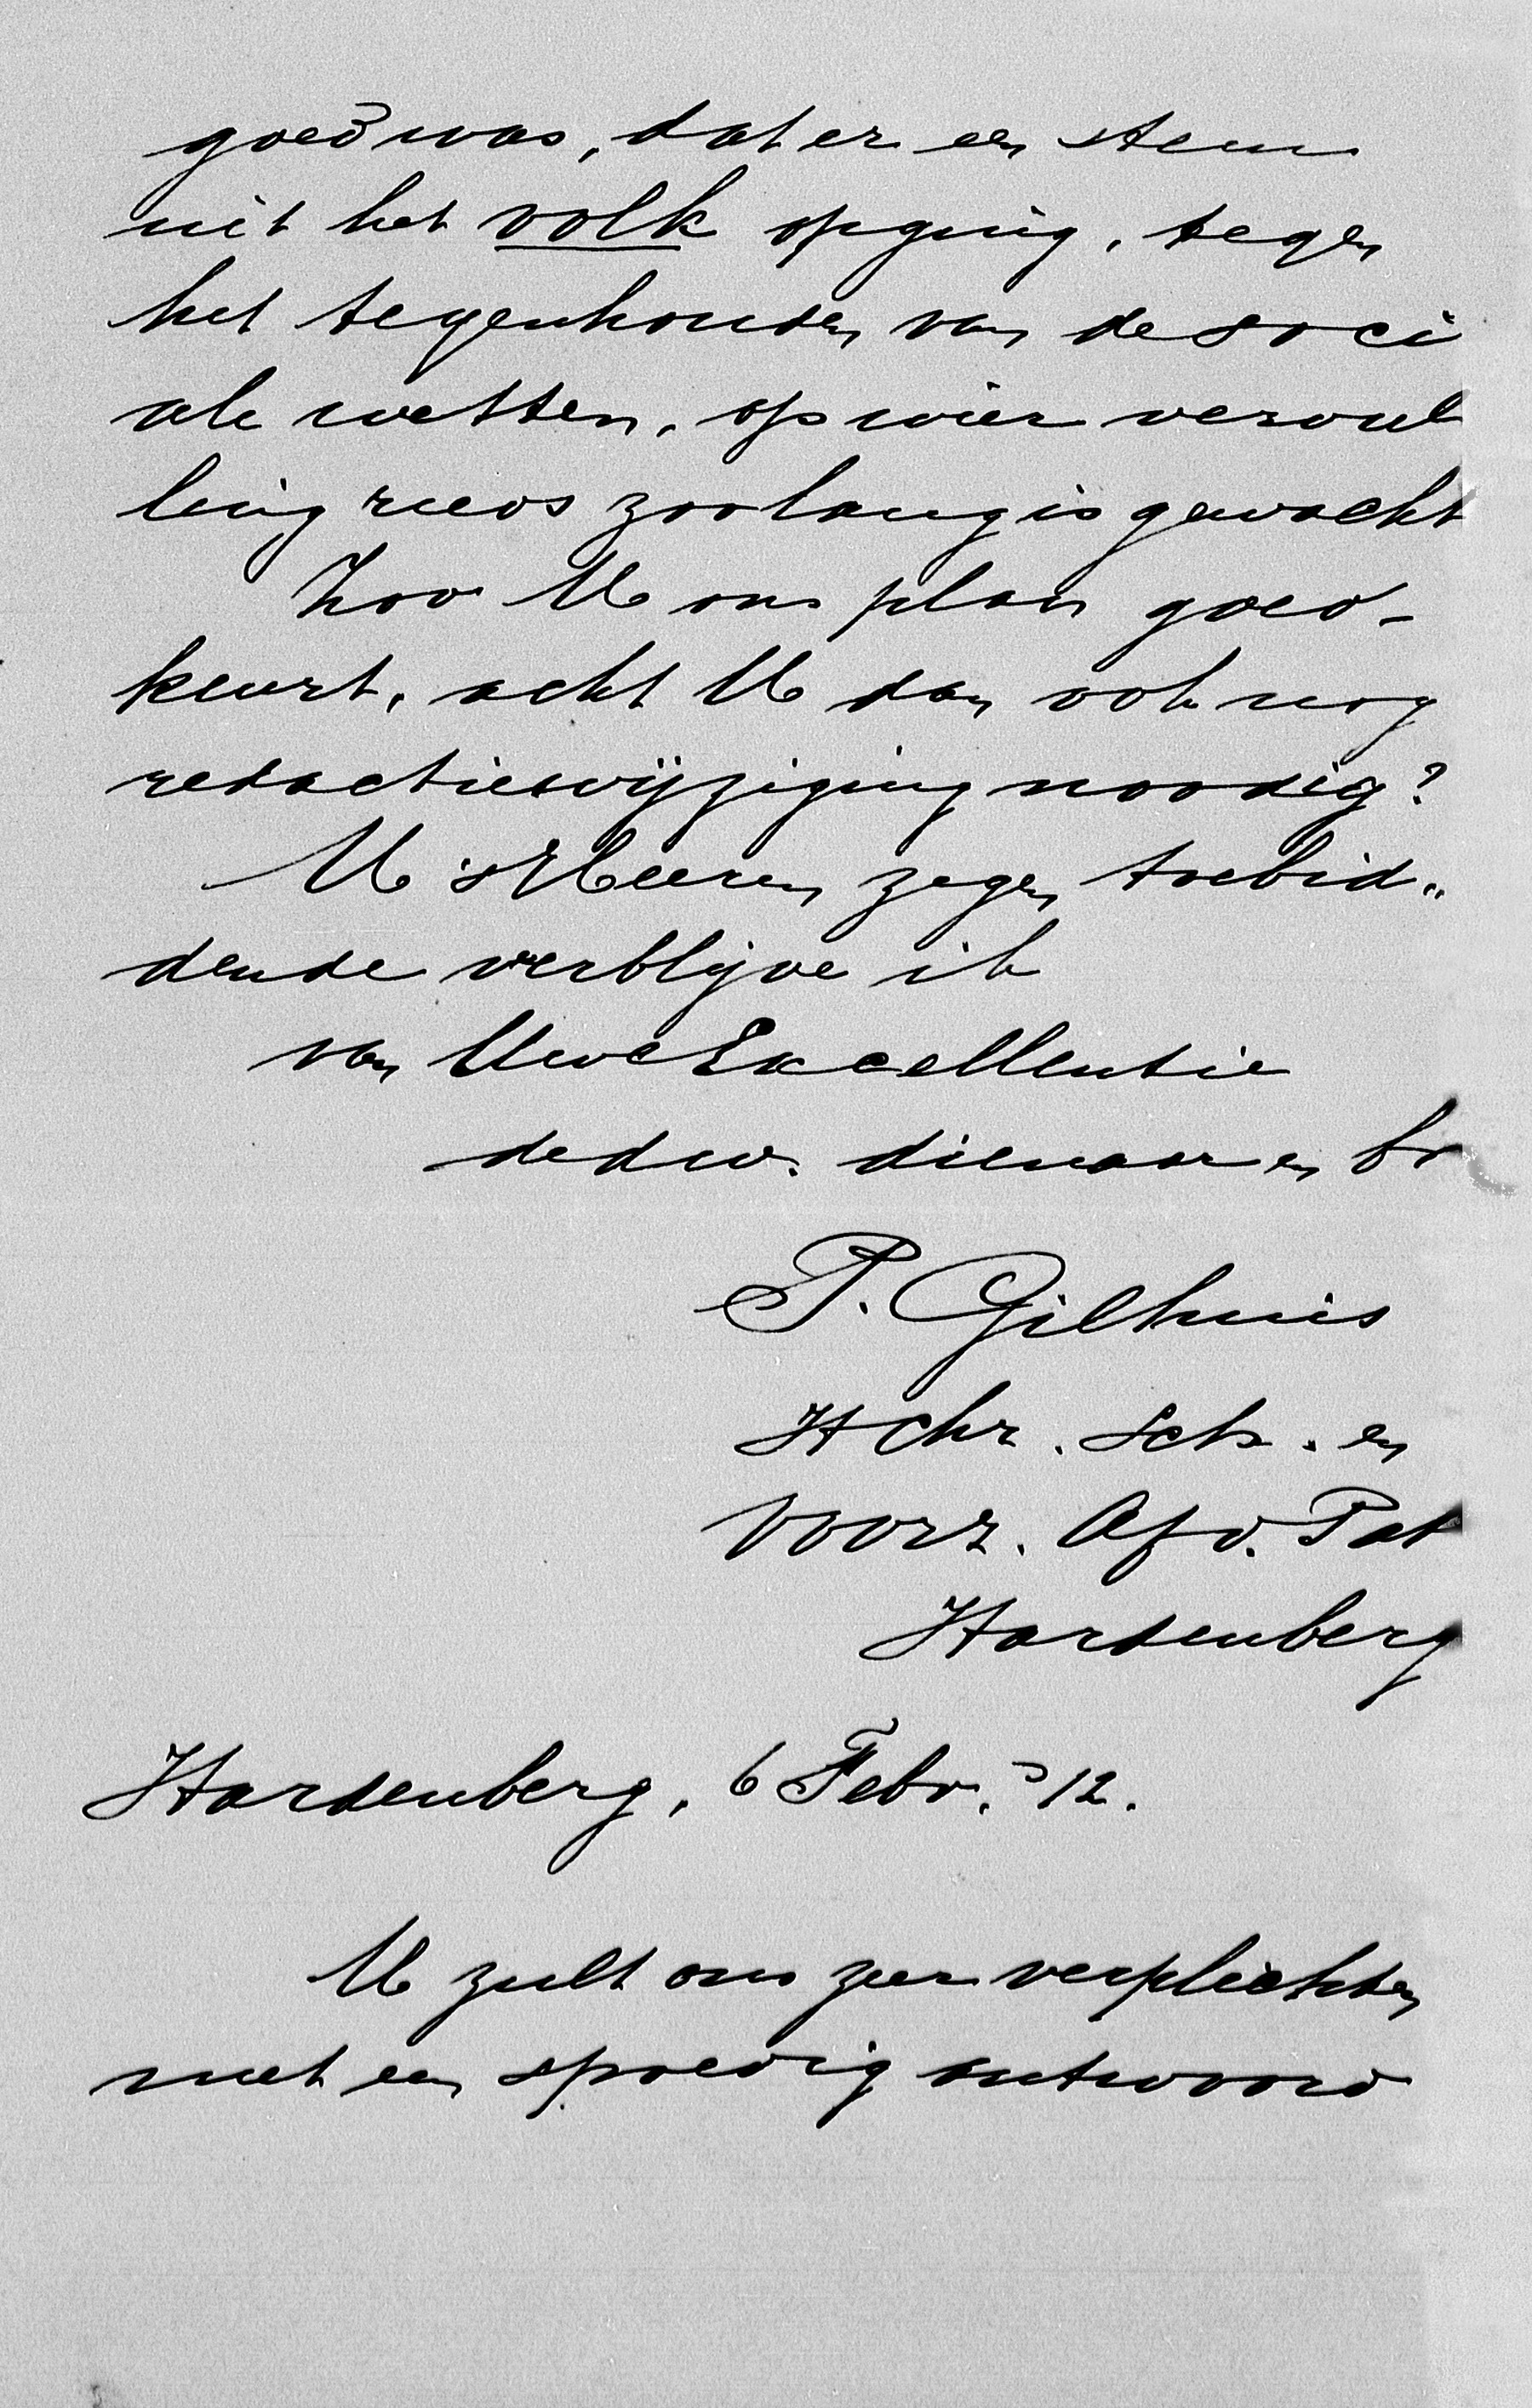 goed was, dat er een stem
uit het volk opging, tegen
het tegenhouden van de soci
ale wetten, op wier vervul
ling reeds zoolang is gewacht
Zoo U ons plan goed-
keurt, acht U dan ook nog
redactiewijziging noodig?
U 's Heeren zegen toebid„
dende verblijve ik
van Uwe Excellentie
dedw. dienaar en br
P. Gilhuis
H Chr. Sch. en
Voorz. Afd. Pat
Hardenberg
Hardenberg, 6 Febr. '12.
U zult ons zeer verplichten
met een spoedig antwoord